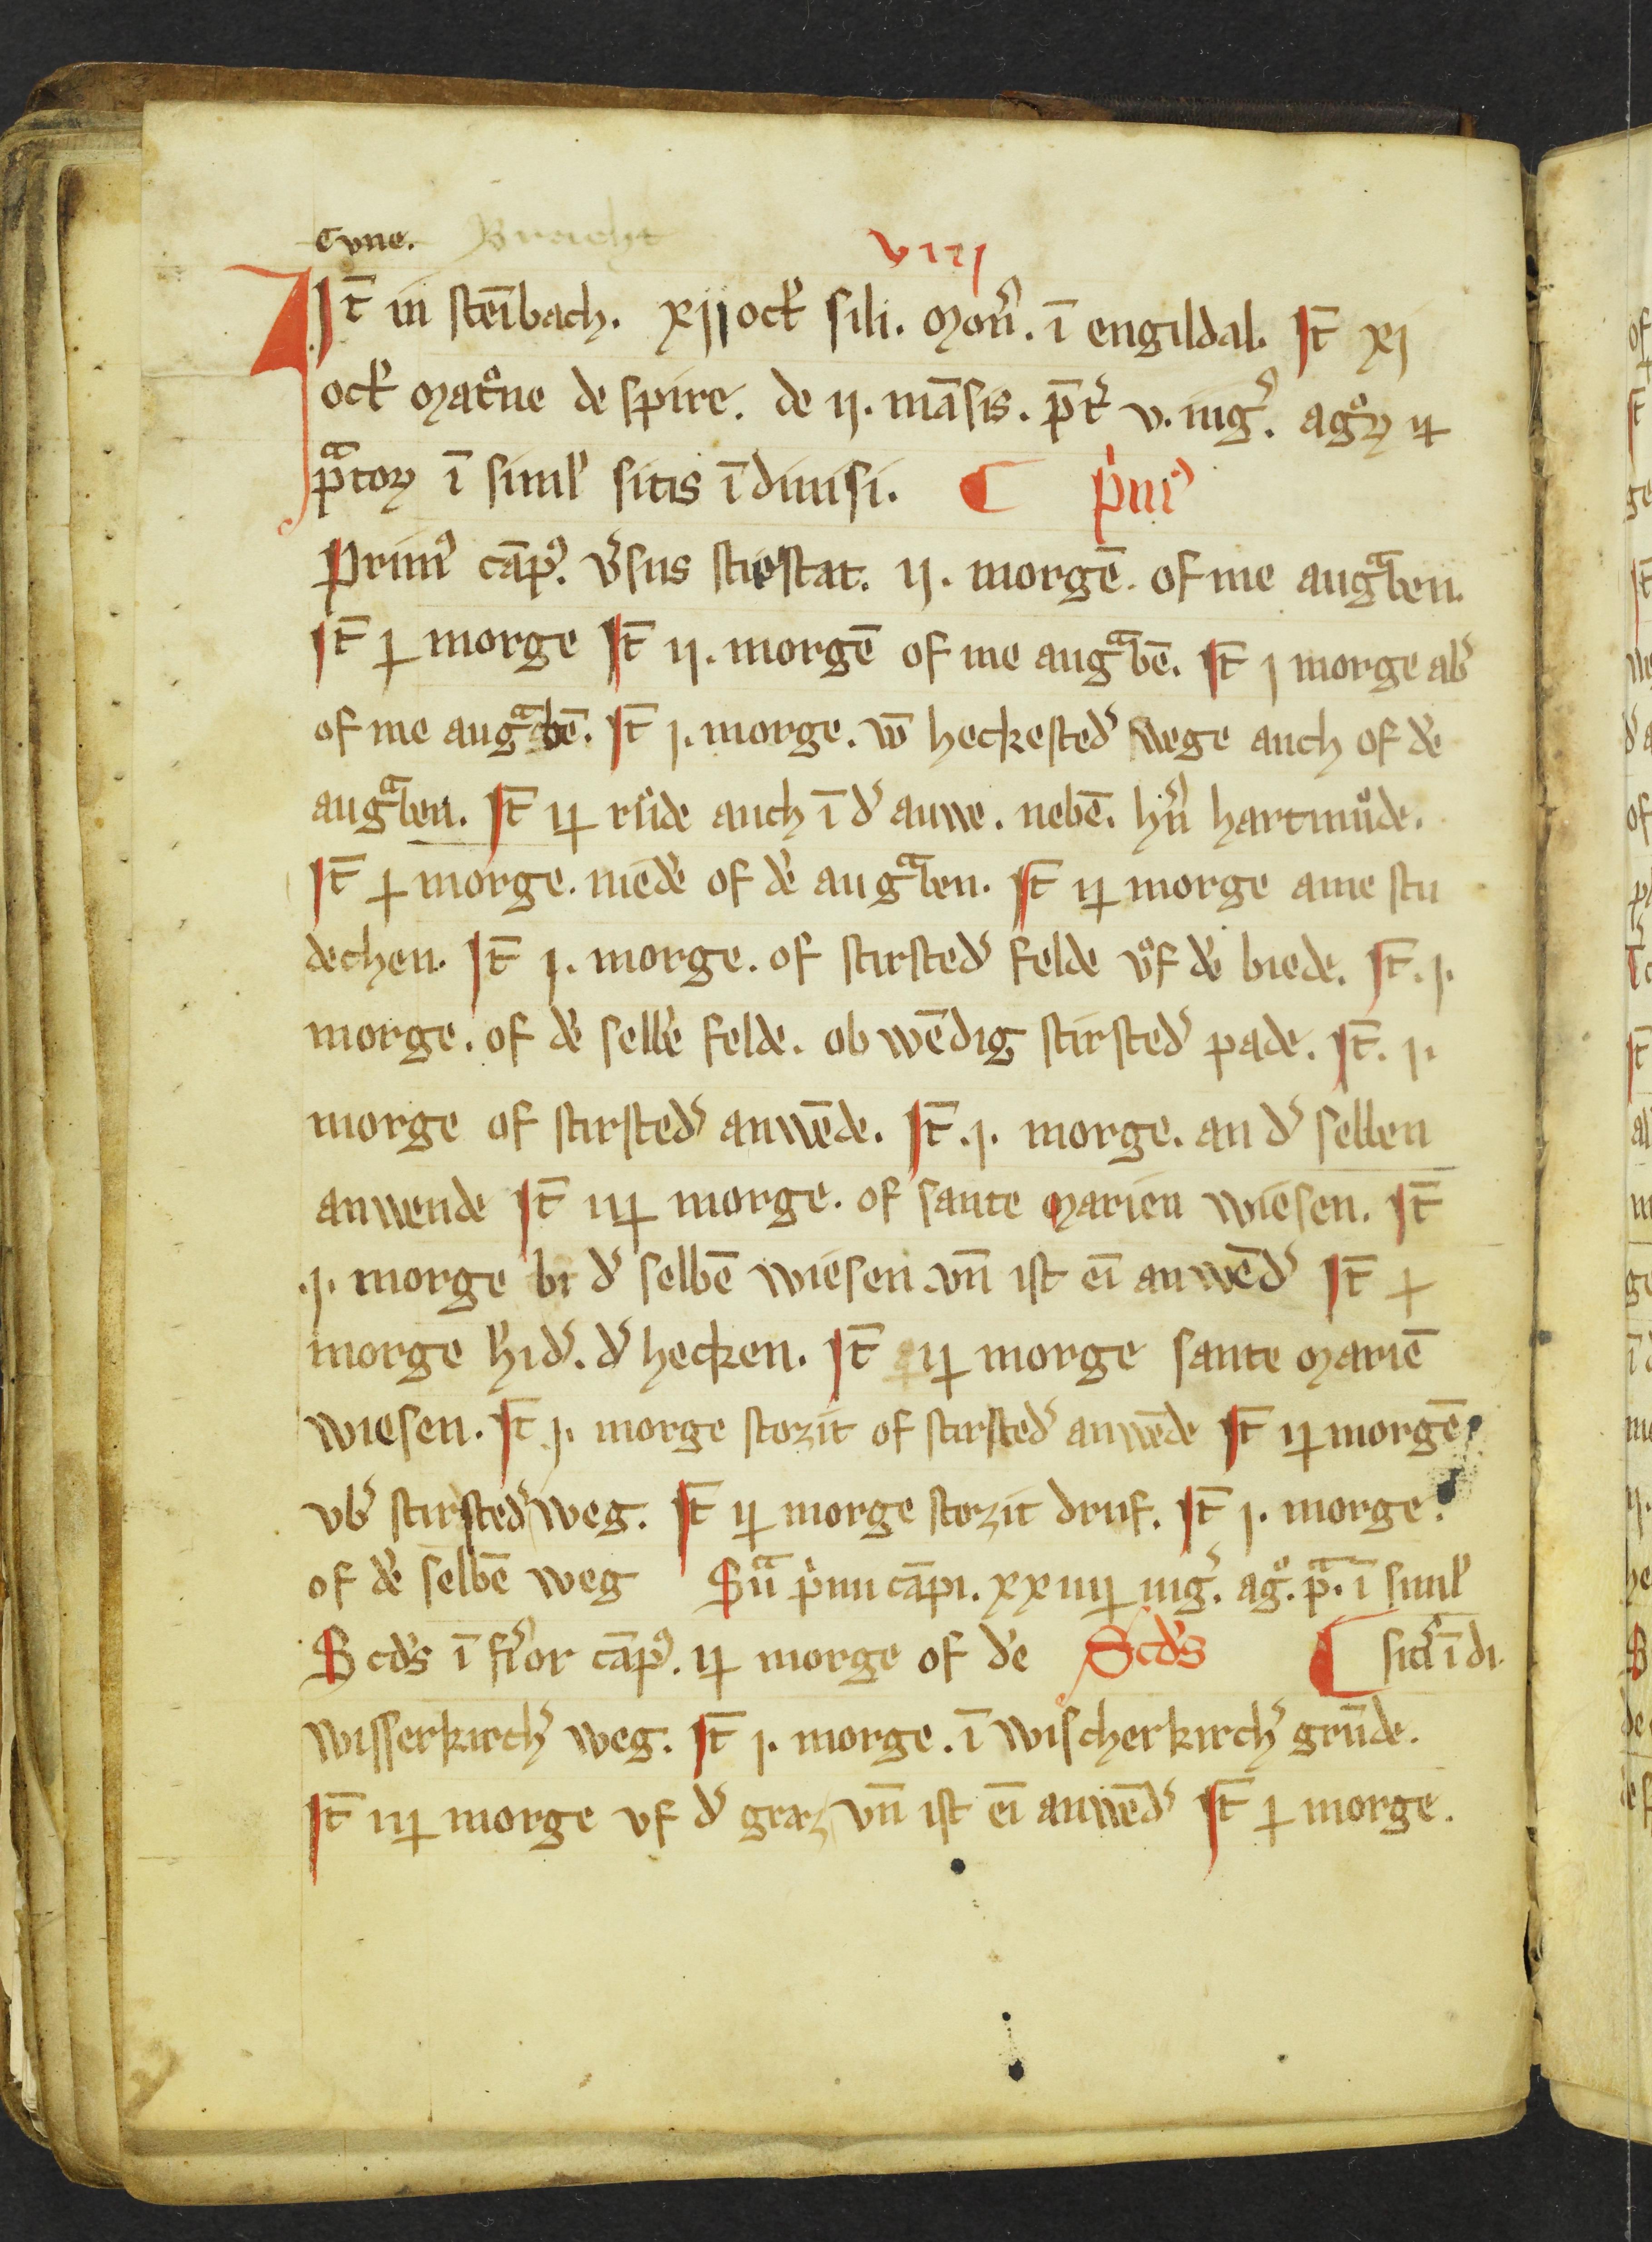 Cvne. Bracht
viij
It̄ in stēibach. xij ock͛ sili. Mon͛. ī engildal. It̄ xj
ock͛ Matͦne de spire. de ij. māsis. p̄t͛ v. iug͛. agͦꝝ ıɟ
pᵃtoꝝ ī simlˀ sitis īdiuisi. ¶ pͥmꝰ
Primꝰ cāpꝰ. v͛sus stirstat. ij. morgē. of me augᵃben.
It̄ ɟ morge It̄ ij. morgē of me augᵃbē. It̄ j morge ab͛
of me augᵃbē. It̄ j. morge. vō heckested͛ wege auch of d͛e
augᵃben. It̄ ıɟ růde auch ī d͛ auwe. nebē. h͛n hartmůde.
It̄ ɟ morge. niēd͛e of d͛e augᵃben. It̄ ıɟ morge ame stu
dechen. It̄ j. morge. of stirsted͛ felde vͦf d͛e biede. It̄. j.
morge. of d͛e selb͛e felde. ob wēdig stirsted͛ pade. It̄. j.
morge of stirsted͛ anwēde. It̄. j. morge. an d͛ selben
anwende It̄ ııɟ morge. of sante Marien wiesen. It̄
.j. morge bi d͛ selbē wiesen. vn̄ ist eī anwēd͛ It̄ ɟ
morge h͛id͛. d͛ hecken. It̄ ıɟ morge sante Mariē
wiesen. It̄ j. morge stozit of stirsted͛ anwēde It̄ ıɟ morgē
vb͛ stirsted͛ weg. It̄ ıɟ morge stozit druf. It̄ j. morge.
of d͛e selbē weg Sūᵃ pͥmi cāpi. xxiiıɟ iug͛. agͦ. pᵃ. ī simlˀ
Scd͛s īf͛ior cāpꝰ. ıɟ morge of d͛e Scd͛s ¶ sit͛ īdi.
wisserkirch͛ weg. It̄ j. morge. ī wischerkirch͛ grūde.
It̄ ııɟ morge vf d͛ geraz, vn̄ ist eī anwēd͛ It̄ ɟ morge.